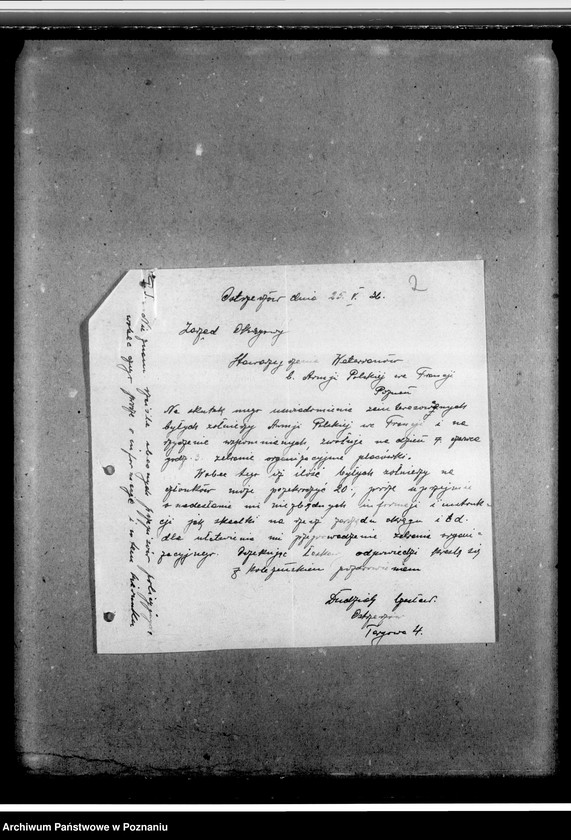 2
Ostrzeszów dnia 25. V. 26.
Zarząd Okręgowy
Stowarzyszenia Weteranów
b. Armji Polskiej we Francji
Poznań
Na skutek mego uwiadomienia zainteresowanych
byłych żołnierzy Armji Polskiej we Francji i na
życzenie wspomnianych, zwołuję na dzień 7. czerwca
godz. zebranie organizacyjne placówki.
Wobec tego iż ilość byłych żołnierzy na
członków może przekroczyć 20, proszę uprzejmie
o nadesłanie mi niezbędnych informacji i instruk-
cji jak składki na rzecz zarządu okręgu i t.d.
dla ułatwienia mi przeprowadzenia zebrania organi-
zacyjnego. Oczekując odpowiedzi kreślę się
z koleżeńskiem pozdrowieniem
Dudziak
Ostrzeszów
Targowa 4.
Nie znam obecnych przepisów policyjnych
wobec czego proszę o informację i w tem kierunku
Archiwum Państwowe w Poznaniu